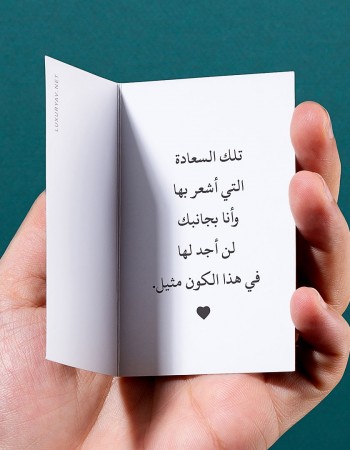 تلك السعادة
التي أشعر بها
وأنا بجانبك
لن أجد لها
في هذا الكون مثيل.